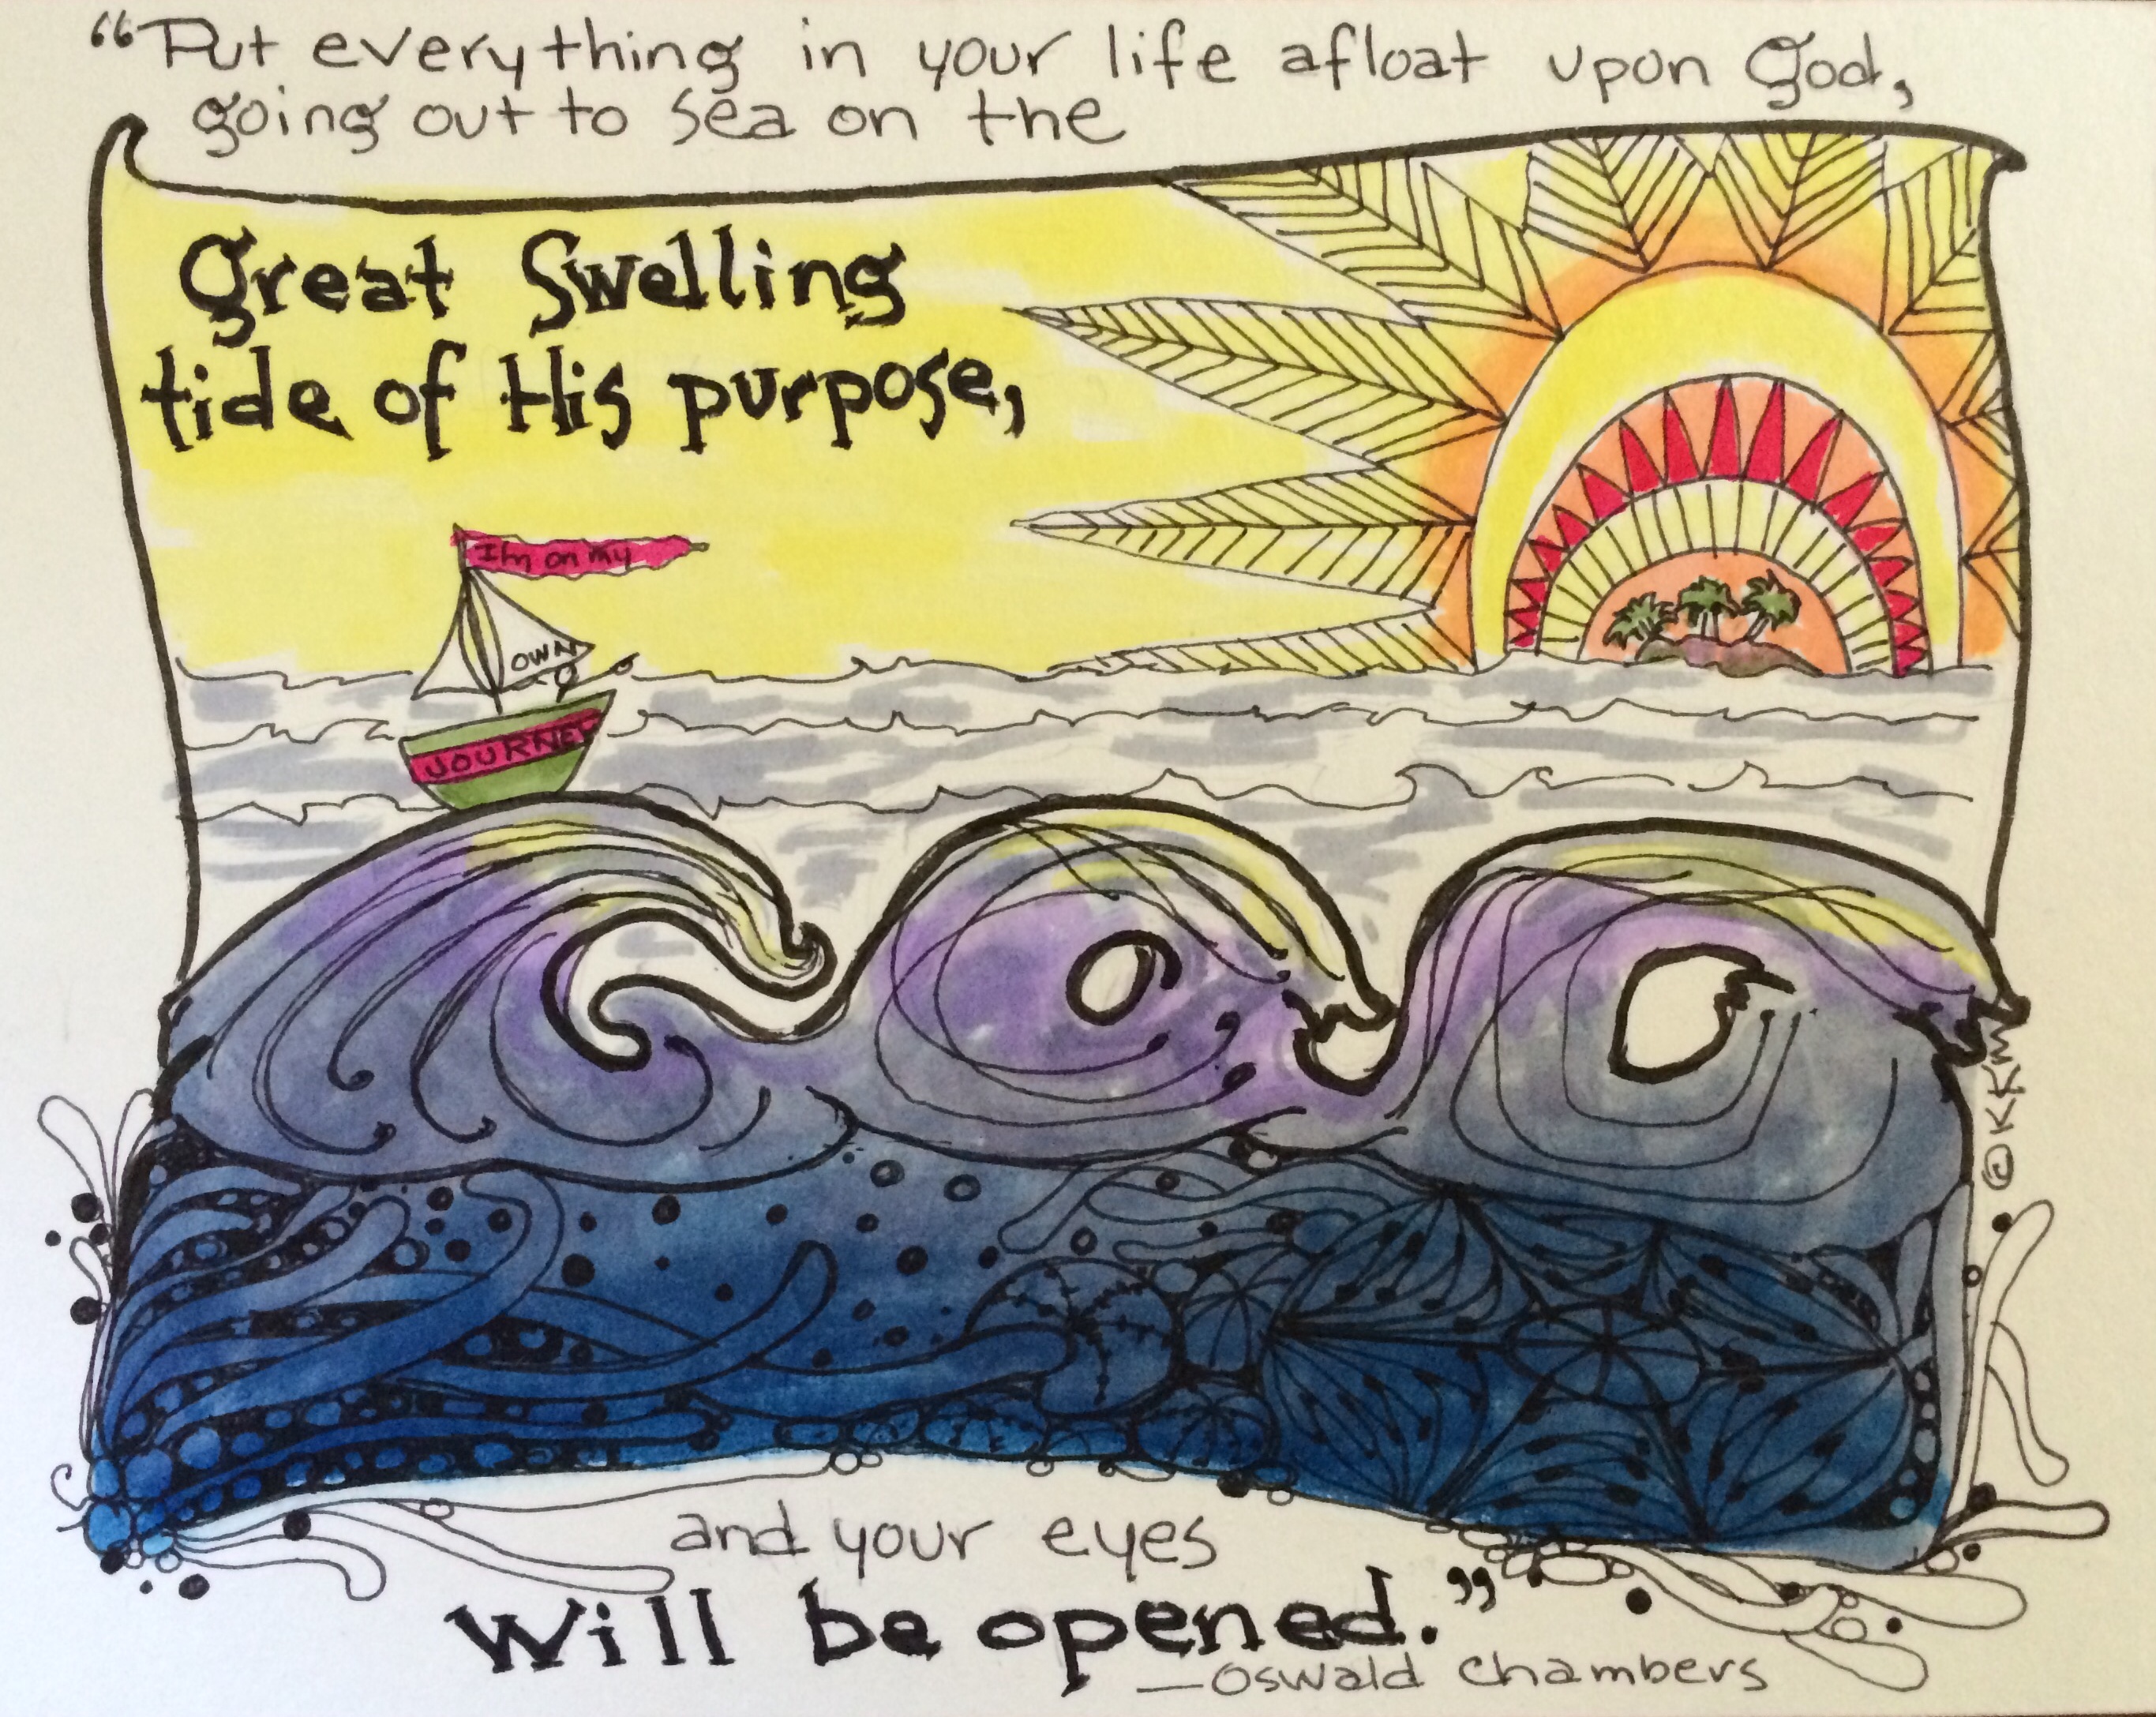 “Put everything in your life afloat upon God,
going out to sea on the
great Swelling
tide of His purpose,
I'm on my
OWN
JOURNEY
©KKM
and your eyes
Will be opened.”
—Oswald Chambers